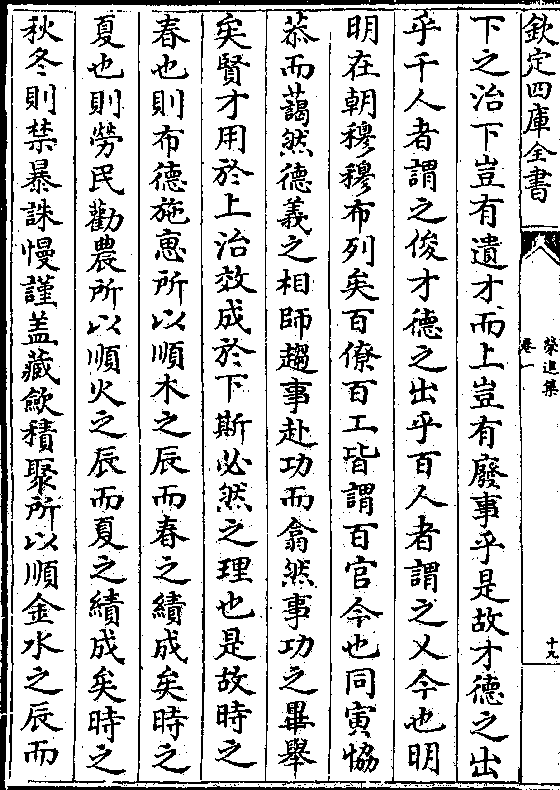 欽定四庫全書
榮進集
卷一
十九
下之治下豈有遺才而上豈有廢事乎是故才德之出
乎千人者謂之俊才德之出乎百人者謂之乂今也明
明在朝穆穆布列矣百僚百工皆謂百官今也同寅恊
恭而藹然德義之相師趨事赴功而翕然事功之畢舉
矣賢才用於上治效成於下斯必然之理也是故時之
春也則布德施惠所以順木之辰而春之績成矣時之
夏也則勞民勸農所以順火之辰而夏之績成矣時之
秋冬則禁暴誅慢謹盖藏歛積聚所以順金水之辰而